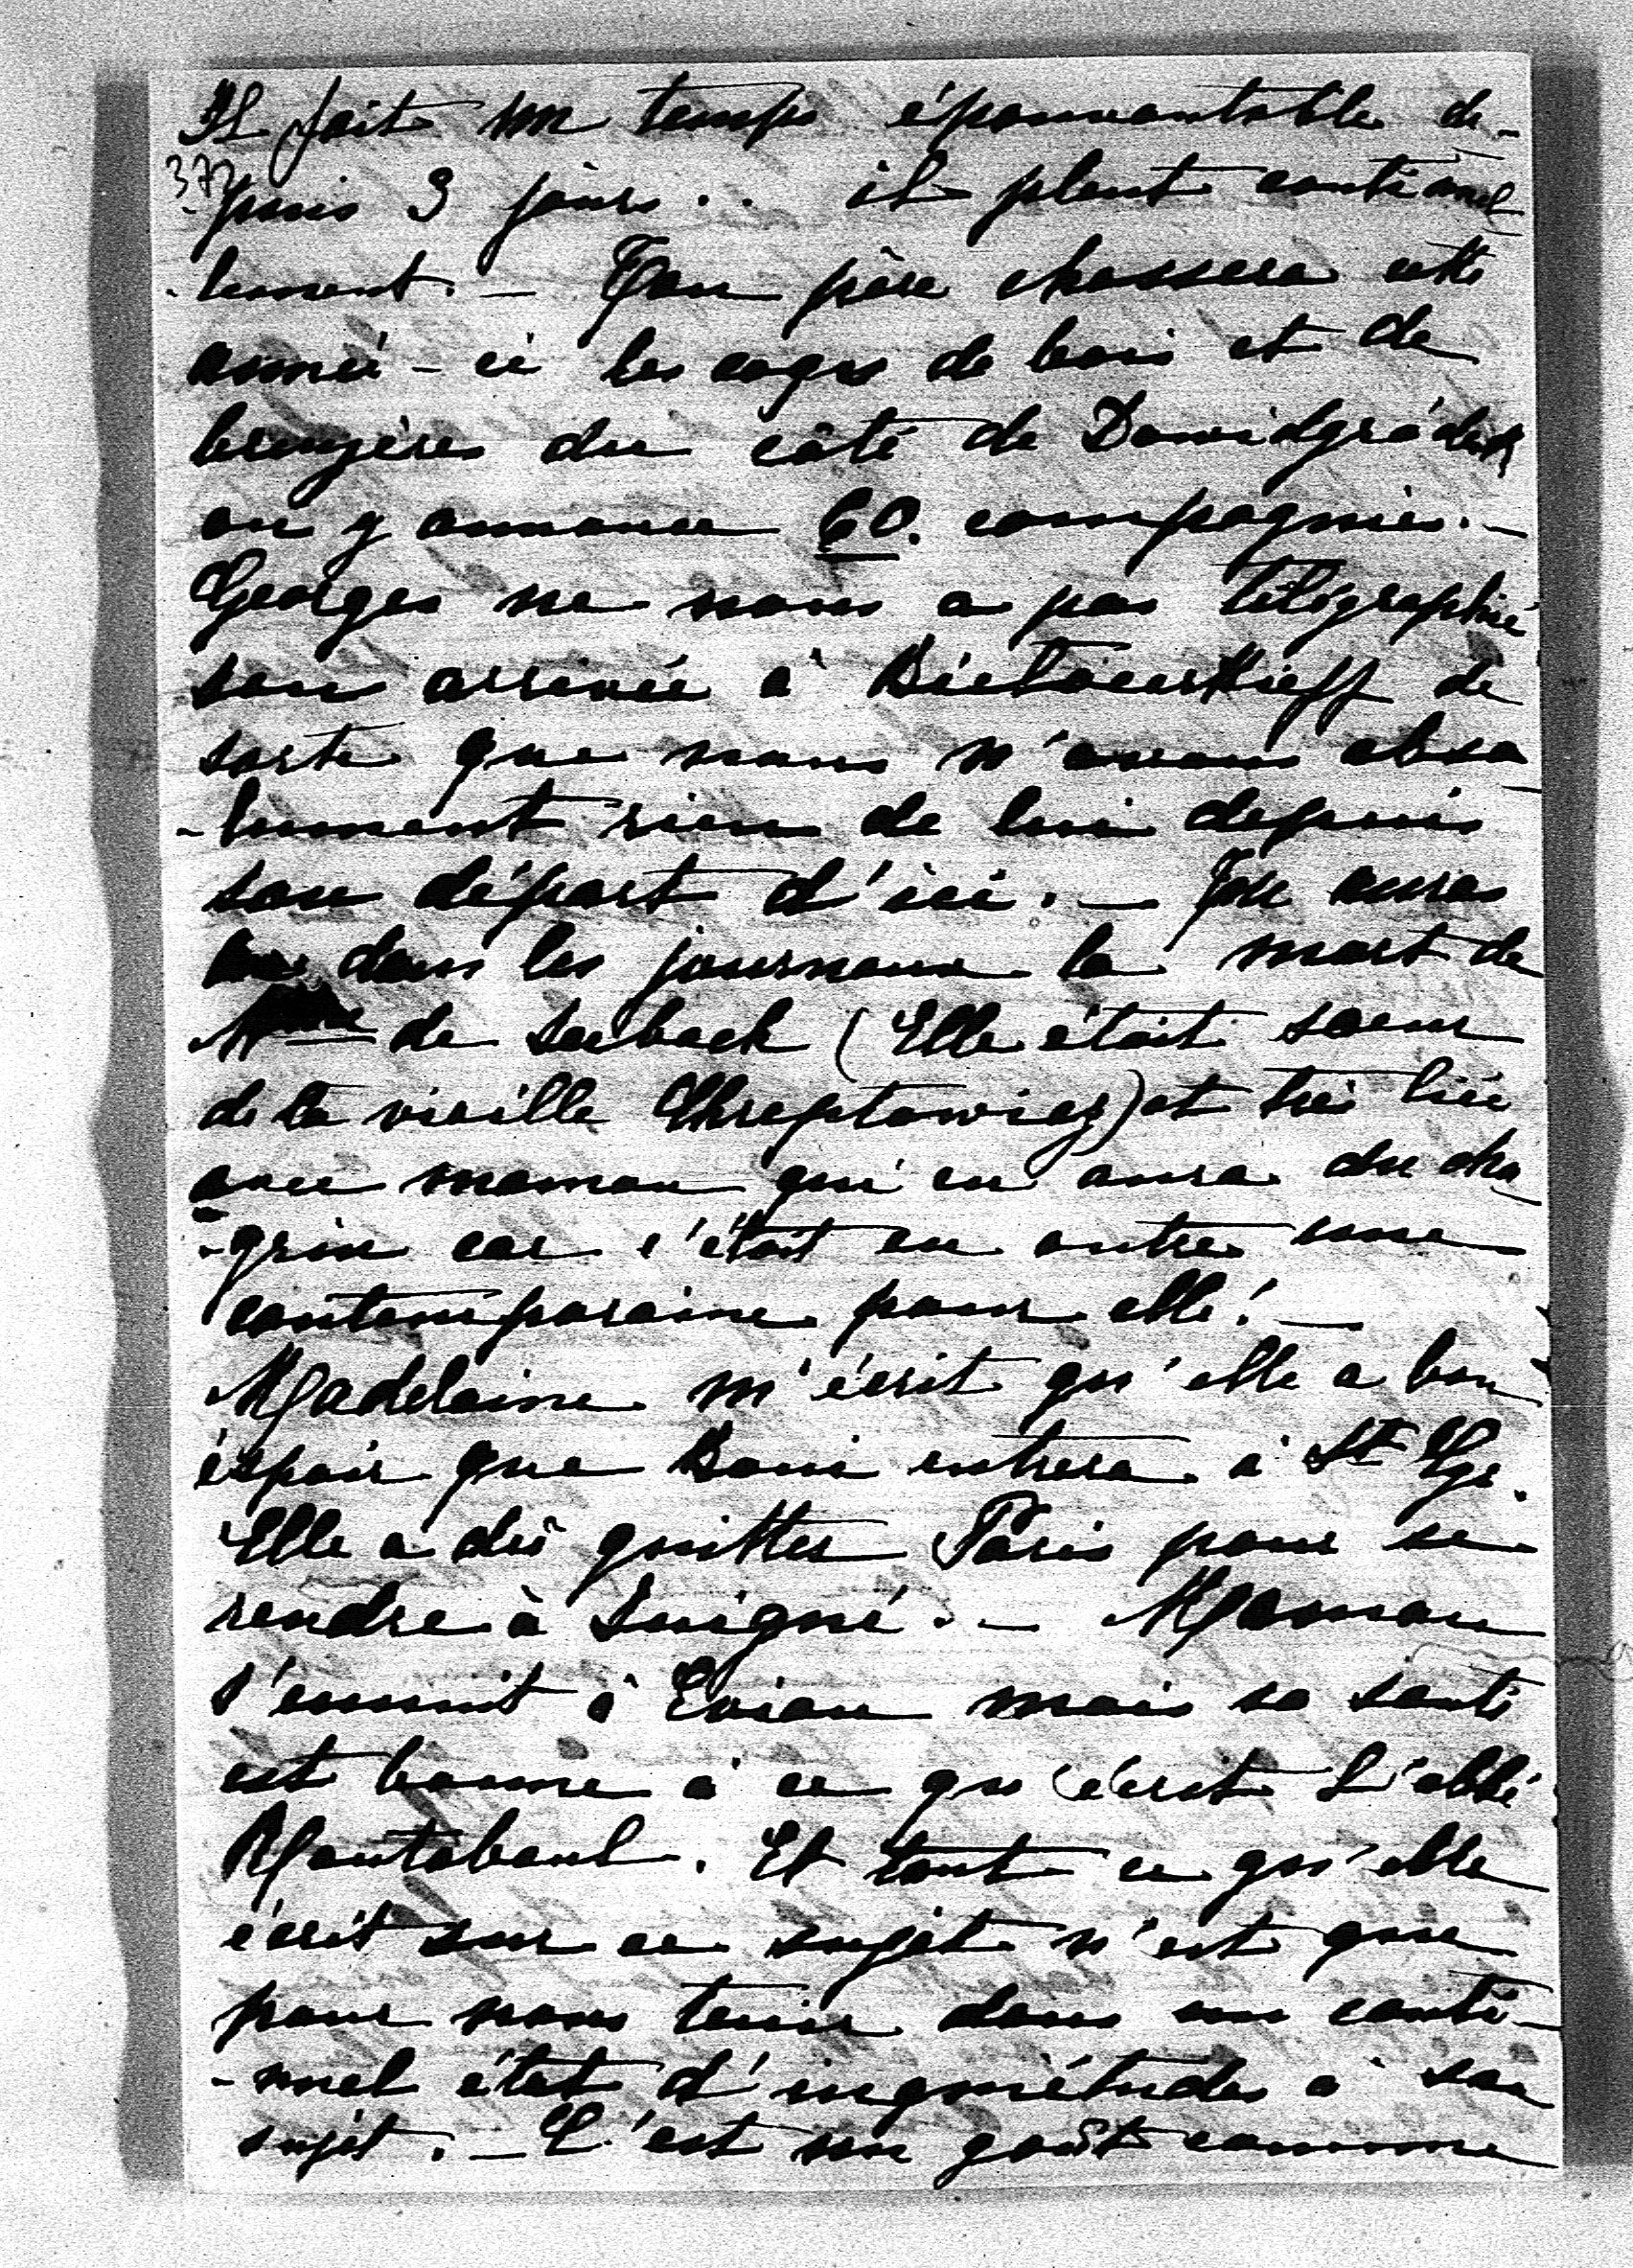 Il fait un temps épouvantable de-
372
-puis 3 jours.. il pleut continuel
-lement. — Ton père chassera cette
année-ci les coqs de bois et de
bruyères du côté de Dawidgródek
on y annonce 60. compagnies. —
Georges ne nous a pas télégraphié
son arrivée à de
sorte que nous n'avons abso
-lument rien de lui depuis
son départ d'ici. — Tu auras
lu dans les journaux la mort de
Mme de Seebach (Elle était soeur
de la vieille Chreptowicz) et très liée
avec maman qui en aura du cha
-grin car c'était en outre une
contemporaine pour elle! —
Madelaine m'écrit qu'elle a bon
éspoir que Boni entrera à St Cyr.
Elle a dû quitter Paris pour se
rendre à Juigné. — Maman
s'ennuit à Evian mais sa santé
est bonne à ce qu'écrit L'abbé
Montaboul. Et tout ce qu'elle
écrit sur ce sujet n'est que
pour nous tenir dans un conti-
-nuel état d'inquiétudes à son
sujet. — C'est un goût comme